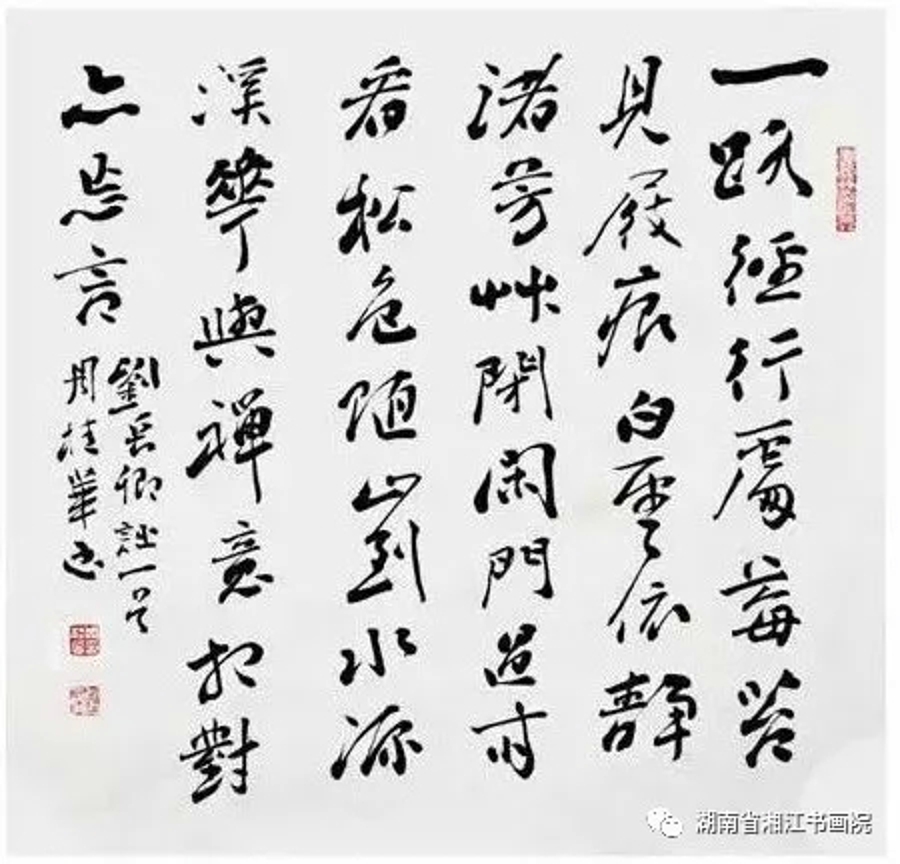 一路經行處莓苔
見屐痕白雲依靜
渚芳艸閉閑門過雨
看松色隨山到水源
溪華與禪意相對
亦忘言
劉長卿詩一首
周桂華书
湖南省湘江书画院